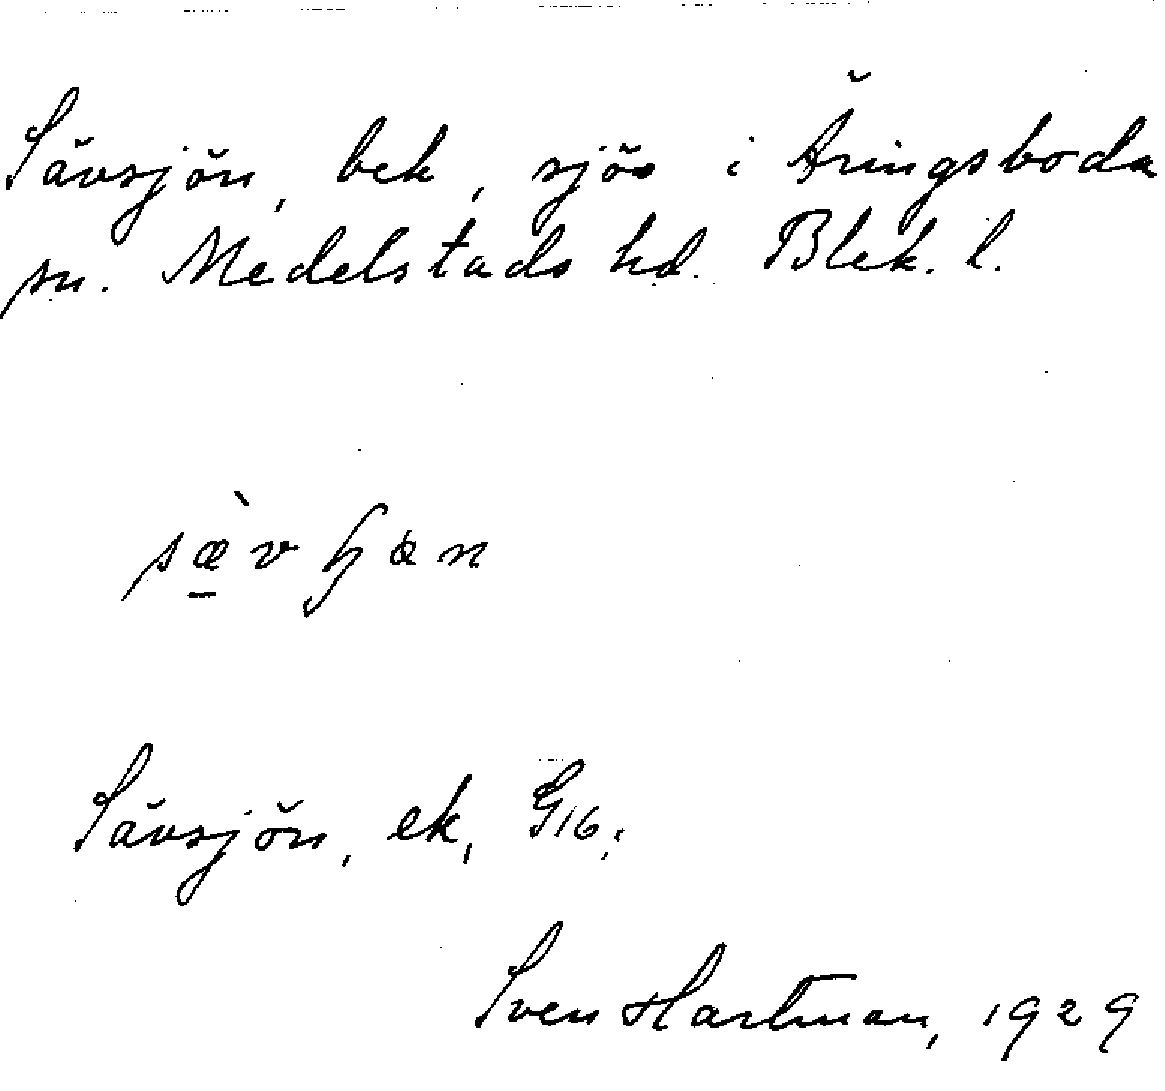 Sävsjön, bek, sjö i Åringsboda
sn. Medelstads hd. Blek. l.
Sävsjön, ek, G16;
Sven Hartman, 1929